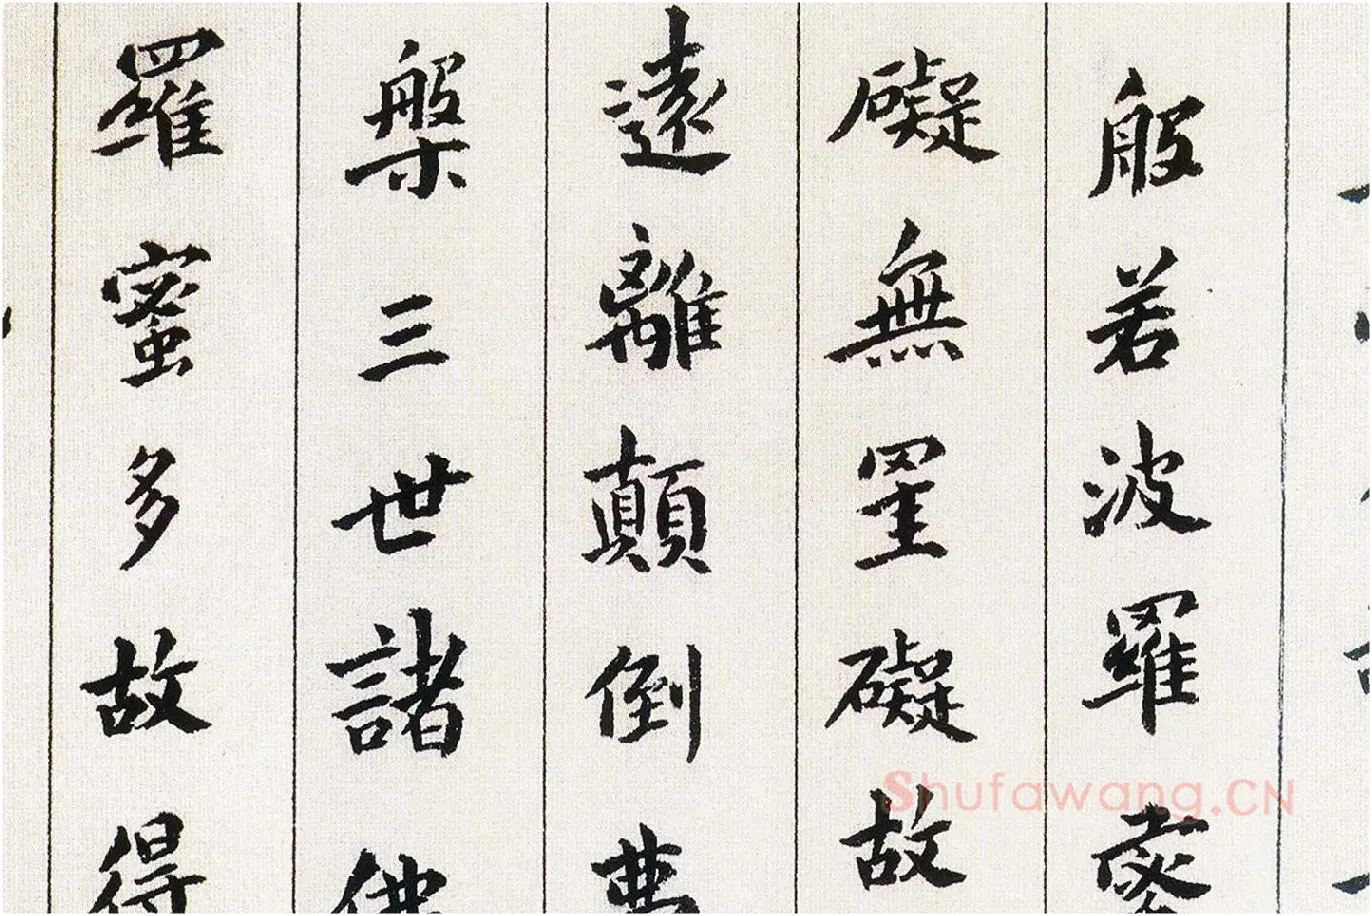 般若波羅蜜
礙無罣礙故
遠離顛倒夢
槃三世諸佛
羅蜜多故得
Shufawang.CN